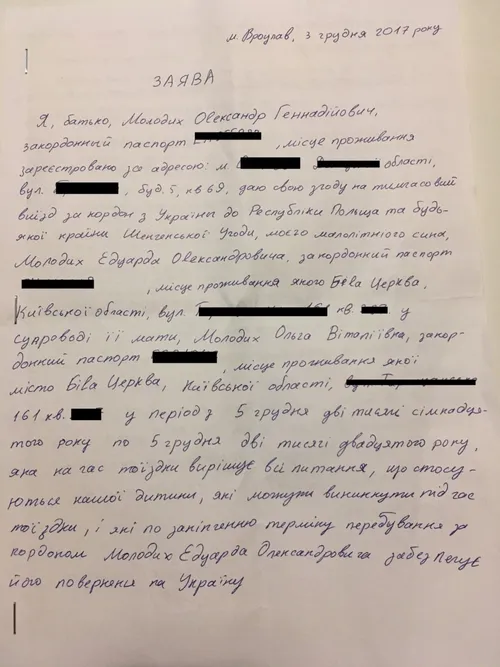 м. Вроцлав, 3 грудня 2017 року
ЗАЯВА
Я, батько, Молодих Олександр Геннадійович,
закордонный паспорт , місце проживання
зареєстровано за адресою: м. області,
вул. , буд. 5, кв 69, даю свою згоду на тимчасовий
виїзд за кордон з Украины до Республіки Польща та будь-
якої країни Шенгенської Угоди, моєго малолітнього сина,
Молодих Едуарда Олександровича, закордонний паспорт
, місце проживання якого Біла Церква,
Київської області, вул. Т 161 кв. у
супроводі її мати, Молодих Ольга Віталіївна, закор-
донний паспорт , місце проживання якої
місто Біла Церква, Київської області,
161 кв. у період з 5 грудня дві тисячі сімнадця-
того року по 5 грудня дві тисячі двадцятого року,
яка на час поїздки вирішує всі питання, що стосу-
ються нашої дитини, які можуть виникнути під час
поїздки, і які по закінченню терміну перебування за
кордоном Молодих Едуарда Олександровича забезпечує
його повернення на Україну